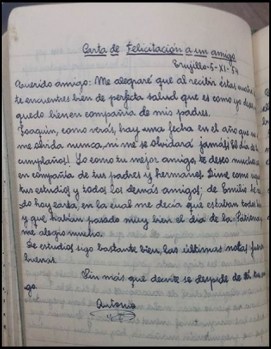 Carta de Felicitación a un amigo
Trujillo-5-XI-54
Querido amigo: Me alegraré que al recibir éstas
te encuentres bien de perfecta salud que es como yo
quedo bien en compañía de mis padres.
Joaquín, como verás, hay una fecha en el año que no
me olvida nunca, ni me se olvidará jamás! El día de
cumpleaños! Yo como tu mejor amigo, te deseo muchas
en compañía de tus padres y hermanos! Dime como sigues
tus estudios y todos los demás amigos; de Emilio
do hoy carta, en la cual me decía que estaban todos
y que habían pasado muy bien el día de la Patrona
me alegro mucho.
De estudios sigo bastante bien, las últimas notas fueron
buenas.
Sin más que decirte se despide de ti tu
go.
Antonio